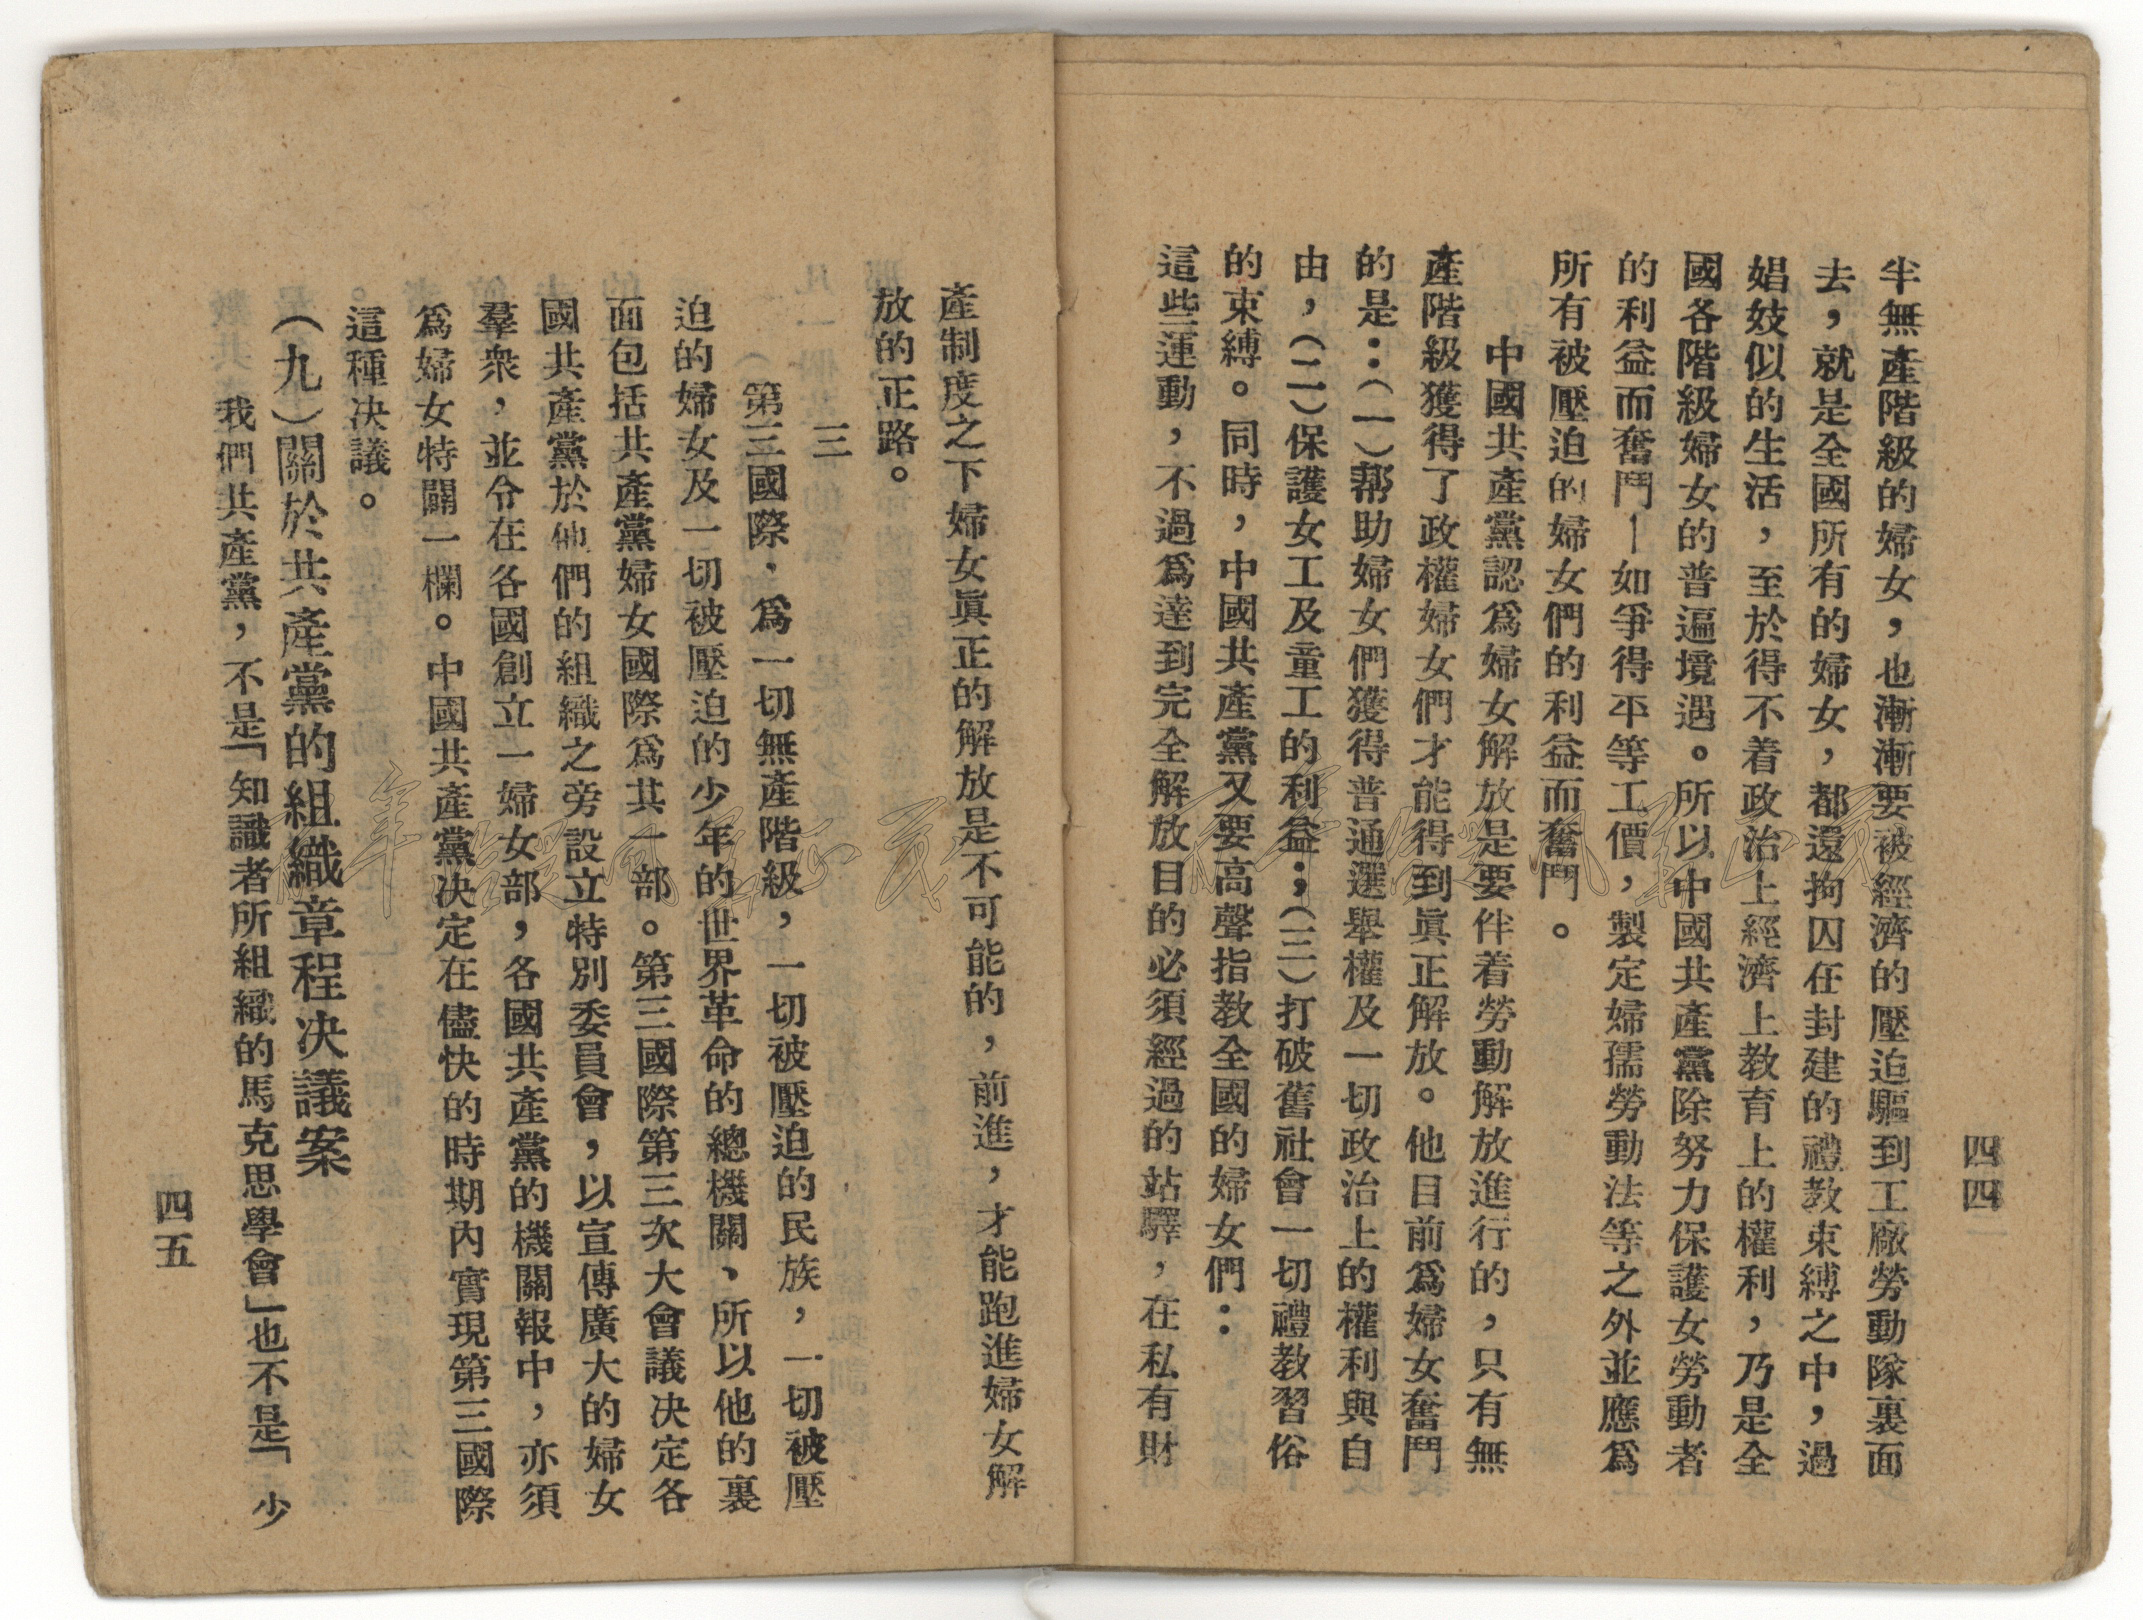 四四
半無產階級的婦女，也漸漸要被經濟的壓迫驅到工廠勞動隊裏面
去，就是全國所有的婦女，都還拘囚在封建的禮教束縛之中，過
娼妓似的生活，至於得不着政治上經濟上教育上的權利，乃是全
國各階級婦女的普遍境遇。所以中國共產黨除努力保護女勞動者
的利益而奮鬥—如爭得平等工價，製定婦孺勞動法等之外並應爲
所有被壓迫的婦女們的利益而奮鬥。
中國共產黨認爲婦女解放是要伴着勞動解放進行的，只有無
產階級獲得了政權婦女們才能得到眞正解放。他目前爲婦女奮鬥
的是：（一）幫助婦女們獲得普通選舉權及一切政治上的權利與自
由，（二）保護女工及童工的利益；（三）打破舊社會一切禮教習俗
的束縛。同時，中國共產黨又要高聲指教全國的婦女們：
這些運動，不過爲達到完全解放目的必須經過的站驛，在私有財
產制度之下婦女眞正的解放是不可能的，前進，才能跑進婦女解
放的正路。
三
第三國際，爲一切無產階級，一切被壓迫的民族，一切被壓
迫的婦女及一切被壓迫的少年的世界革命的總機關、所以他的裏
面包括共產黨婦女國際爲其一部。第三國際第三次大會議决定各
國共產黨於他們的組織之旁設立特別委員會，以宣傳廣大的婦女
羣衆，並令在各國創立一婦女部，各國共產黨的機關報中，亦須
爲婦女特闢一欄。中國共產黨决定在儘快的時期內實現第三國際
這種决議。
（九）關於共產黨的組織章程决議案
我們共產黨，不是「知識者所組織的馬克思學會」也不是「少
四五